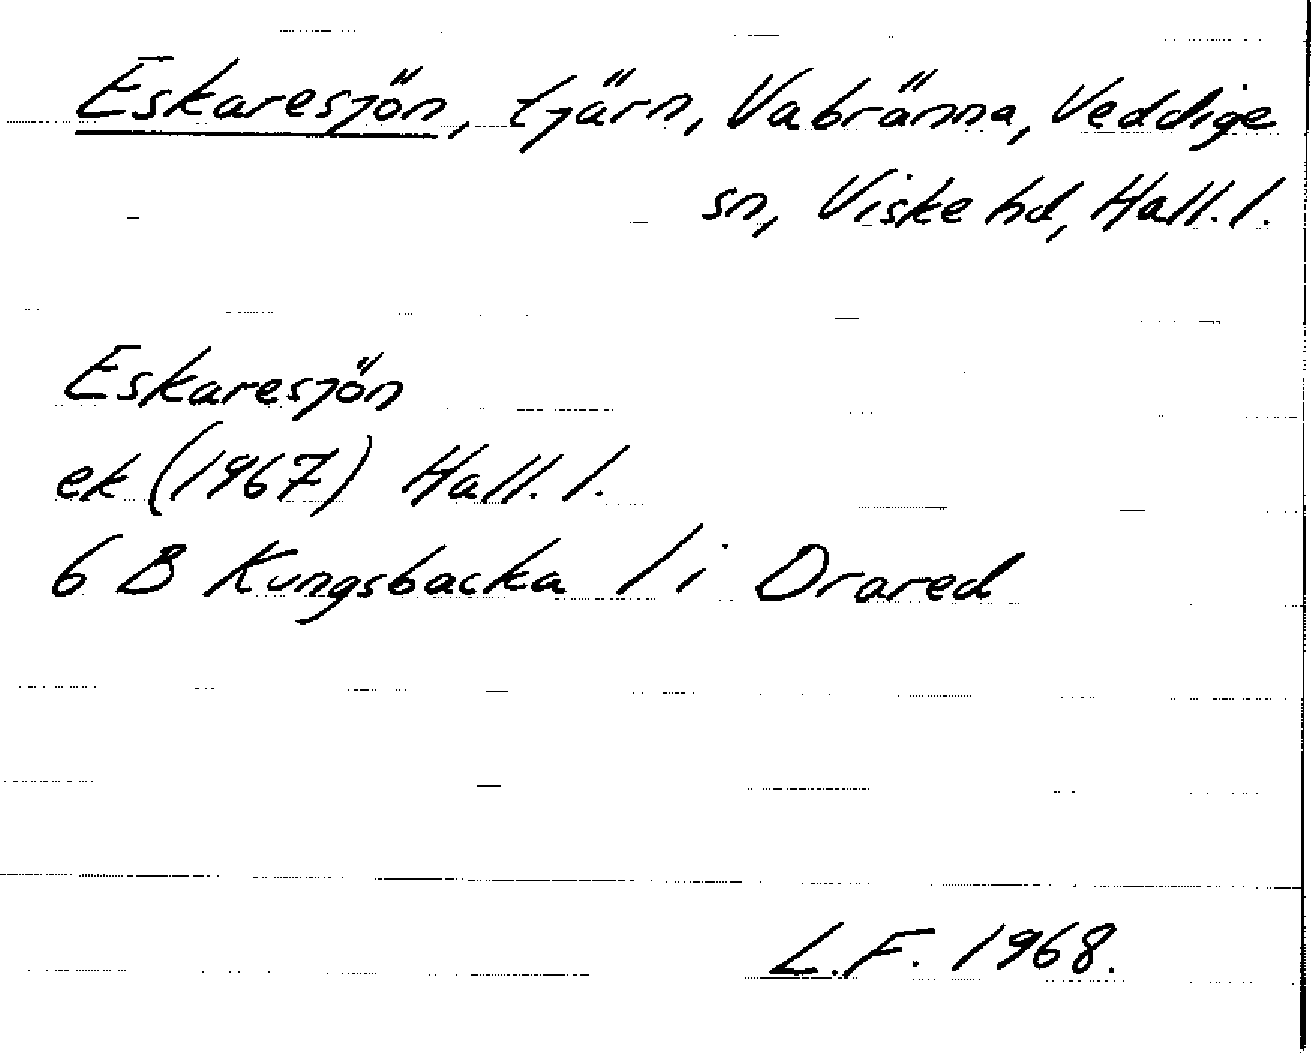 Eskaresjön, tjärn, Vabränna, Veddige
sn, Viske hd, Hall. l.
Eskaresjön
ek (1967) Hall. l.
6 B Kungsbacka 1 i Drared
L.F. 1968.